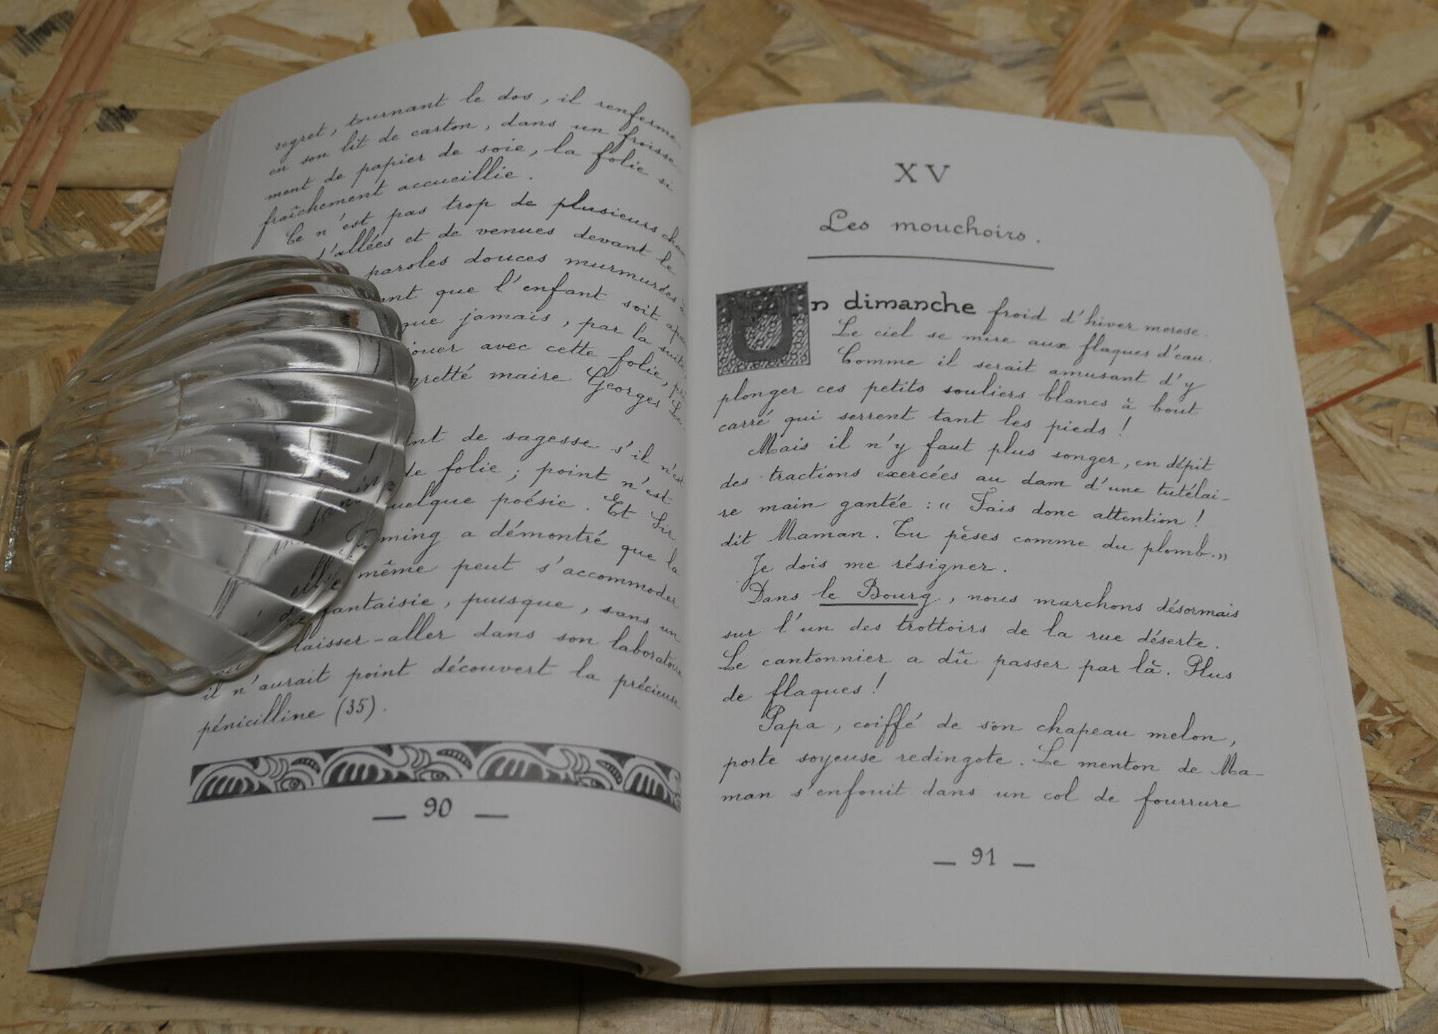 regret, tournant le dos, il renferme
en son lit de carton, dans un froisse
ment de papier de soie, la folie si
fraîchement accueillie.
Ce n'est pas trop de plusieurs
d'allées et de venues devant le
paroles douces murmurées
que l'enfant soit
que jamais, par la suite
jouer avec cette folie,
maire Georges
de sagesse s'il n'est
de folie ; point n'est
quelque poésie. Et Sir
a démontré que la
même peut s'accommoder
fantaisie, puisque, sans un
laisser-aller dans son laboratoire
il n'aurait point découvert la précieuse
pénicilline (35).
— 90 —
XV
Les mouchoirs.
Un dimanche froid d'hiver morose.
Le ciel se mire aux flaques d'eau.
Comme il serait amusant d'y
plonger ces petits souliers blancs à bout
carré qui serrent tant les pieds !
Mais il n'y faut plus songer, en dépit
des tractions exercées au dam d'une tutélai-
re main gantée : « Fais donc attention !
dit Maman. Tu pèses comme du plomb. »
Je dois me résigner.
Dans le Bourg, nous marchons désormais
sur l'un des trottoirs de la rue déserte.
Le cantonnier a dû passer par là. Plus
de flaques !
Papa, coiffé de son chapeau melon,
porte soyeuse redingote. Le menton de Ma-
man s'enfouit dans un col de fourrure
— 91 —